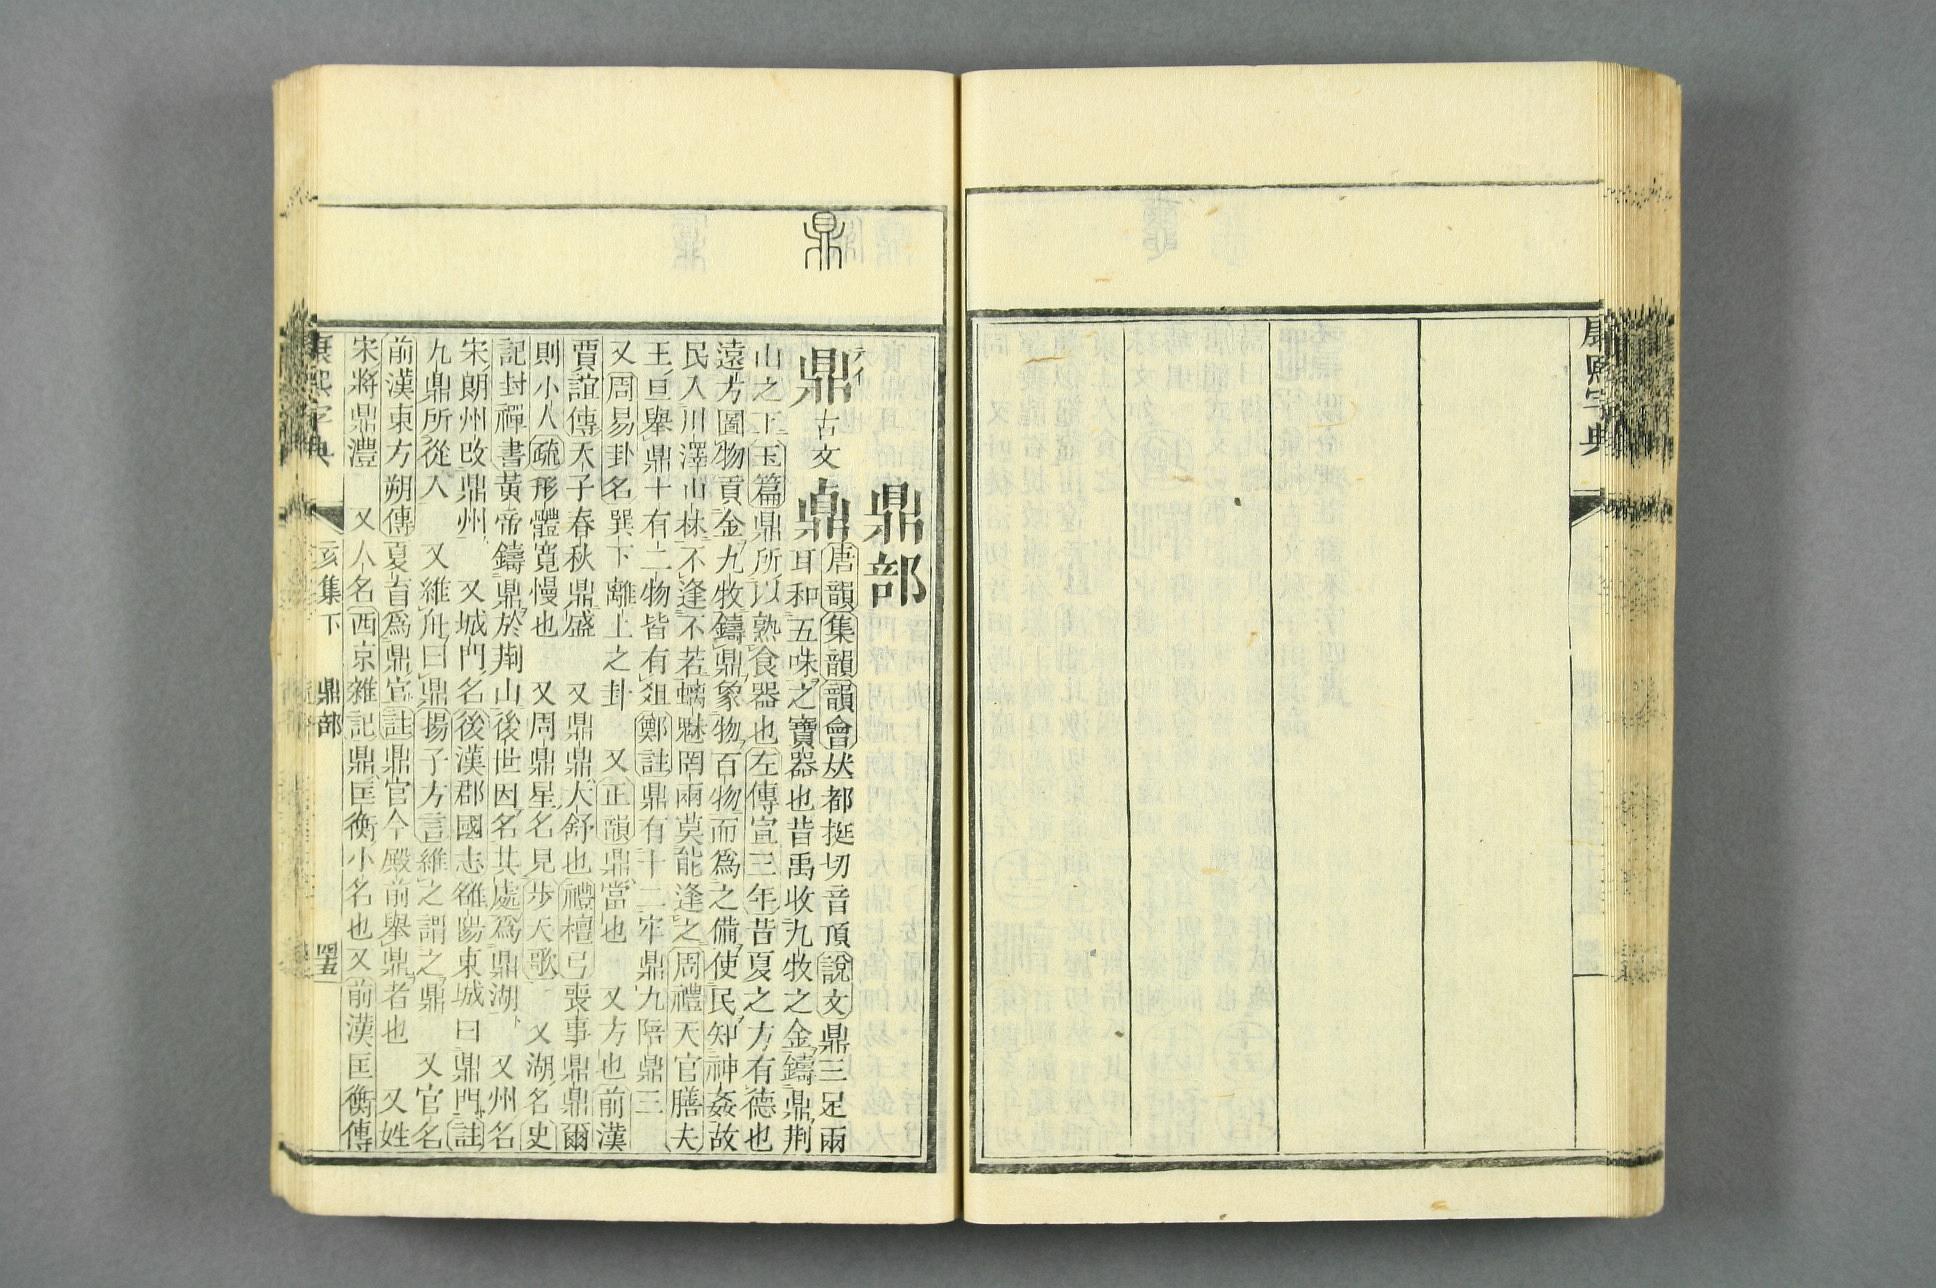 康熙字典
鼎
鼎部
鼎 古文
唐韻集韻韻會𠀤都挺切音頂說文鼎三足兩
耳和五味之寶器也昔禹收九牧之金鑄鼎荆
山之下玉篇鼎所以熟食器也左傳宣三年昔夏之方有德也
遠方圖物貢金九牧鑄鼎象物百物而爲之備使民知神姦故
民入川澤山林不逢不若螭魅罔兩莫能逢之周禮天官膳夫
王日一舉鼎十有二物皆有俎鄭註鼎有十二牢鼎九陪鼎三
又周易卦名巽下離上之卦 又正韻鼎當也 又方也前漢
賈誼傳天子春秋鼎盛 又鼎鼎大舒也禮檀弓喪事鼎鼎爾
則小人疏形體寬慢也 又周鼎星名見步天歌 又湖名史
記封禪書黃帝鑄鼎於荆山後世因名其處爲鼎湖 又州名
宋朗州改鼎州 又城門名後漢郡國志雒陽東城曰鼎門註
九鼎所從入 又維舟曰鼎揚子方言維之謂之鼎 又官名
前漢東方朔傳夏育爲鼎官註鼎官今殿前舉鼎者也 又姓
宋將鼎澧 又人名西京雜記鼎匡衡小名也又前漢匡衡傳
康熙字典 亥集下 鼎部 四五